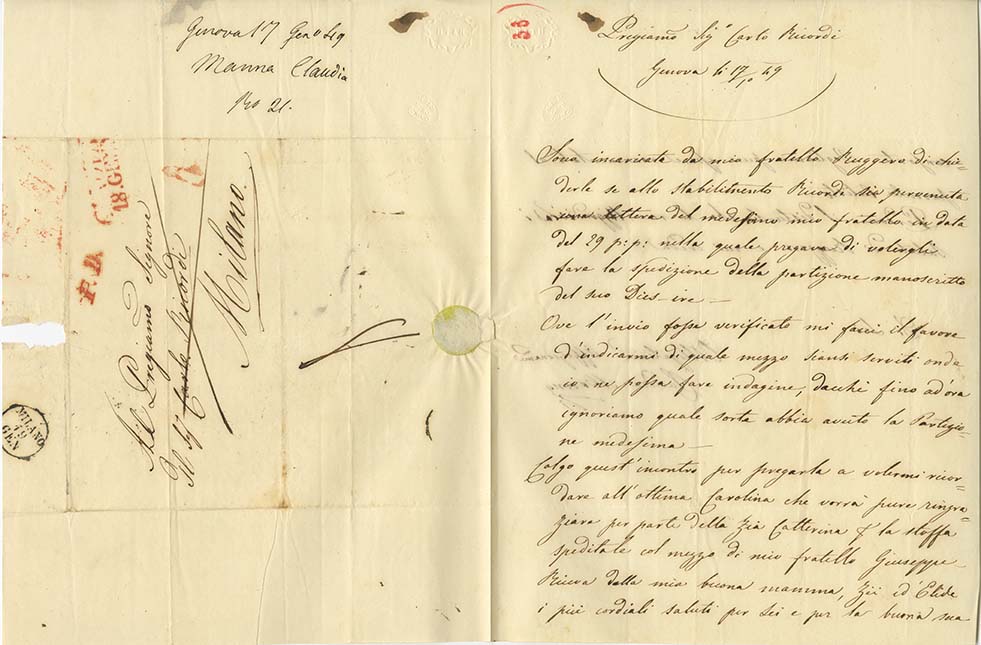 Genova 17 Gen.o 49
Manna Claudia
18.GEN
P.D
All Pregiamo Signore
Il Sigr Carlo Ricordi
Milano.
MILANO
19
GEN
38
Pregiamo Sigr Carlo Ricordi
Genova li 17/1o 49
Sono incaricata da mio fratello Ruggero di chie-
derle se allo stabilimento Ricordi sia pervenuta
una lettera del medesimo mio fratello in data
del 29 p: p: nella quale pregava di volergli
fare la spedizione della partizione manoscritto
del suo Dies-ire —
Ove l'invio fossa verificato mi facci il favore
d'indicarmi di quale mezzo siansi serviti onde
io ne possa fare indagine, dacchè fino ad'ora
ignoriamo quale sorta abbia avuto la Partizio-
ne medesima —
Colgo quest'incontro per pregarla a volermi ricor-
dare all'ottima Carolina che vorrà pure ringra-
ziare per parte della Zia Catterina la stoffa
speditale col mezzo di mio fratello Giuseppe
Riceva dalla mia buona mamma, Zii ed'Elide
i più cordiali saluti per Lei e per la buona sua